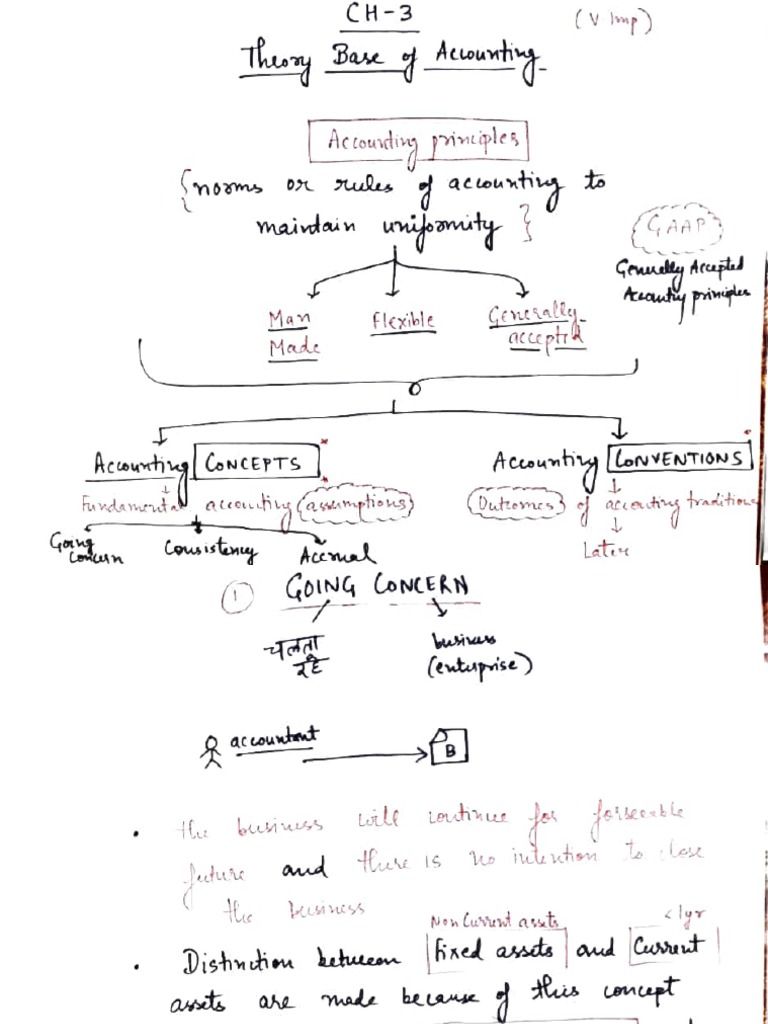 CH-3
(V Imp)
Theory Base of Accounting
Accounting principles
{norms or rules of accounting to
maintain uniformity}
GAAP
Generally Accepted
Accounting principles
Man
Made
Flexible
Generally
accepted
Accounting CONCEPTS
Accounting CONVENTIONS
Fundamental accounting assumptions
Outcomes of accounting traditions
Later
Going
Concern
Consistency
Accrual
1 GOING CONCERN
चलता
रहे
business
(enterprise)
accountant
B
• the business will continue for forseeable
future and there is no intention to close
the business
Non Current assets
< 1yr
• Distinction between fixed assets and Current
assets are made because of this concept